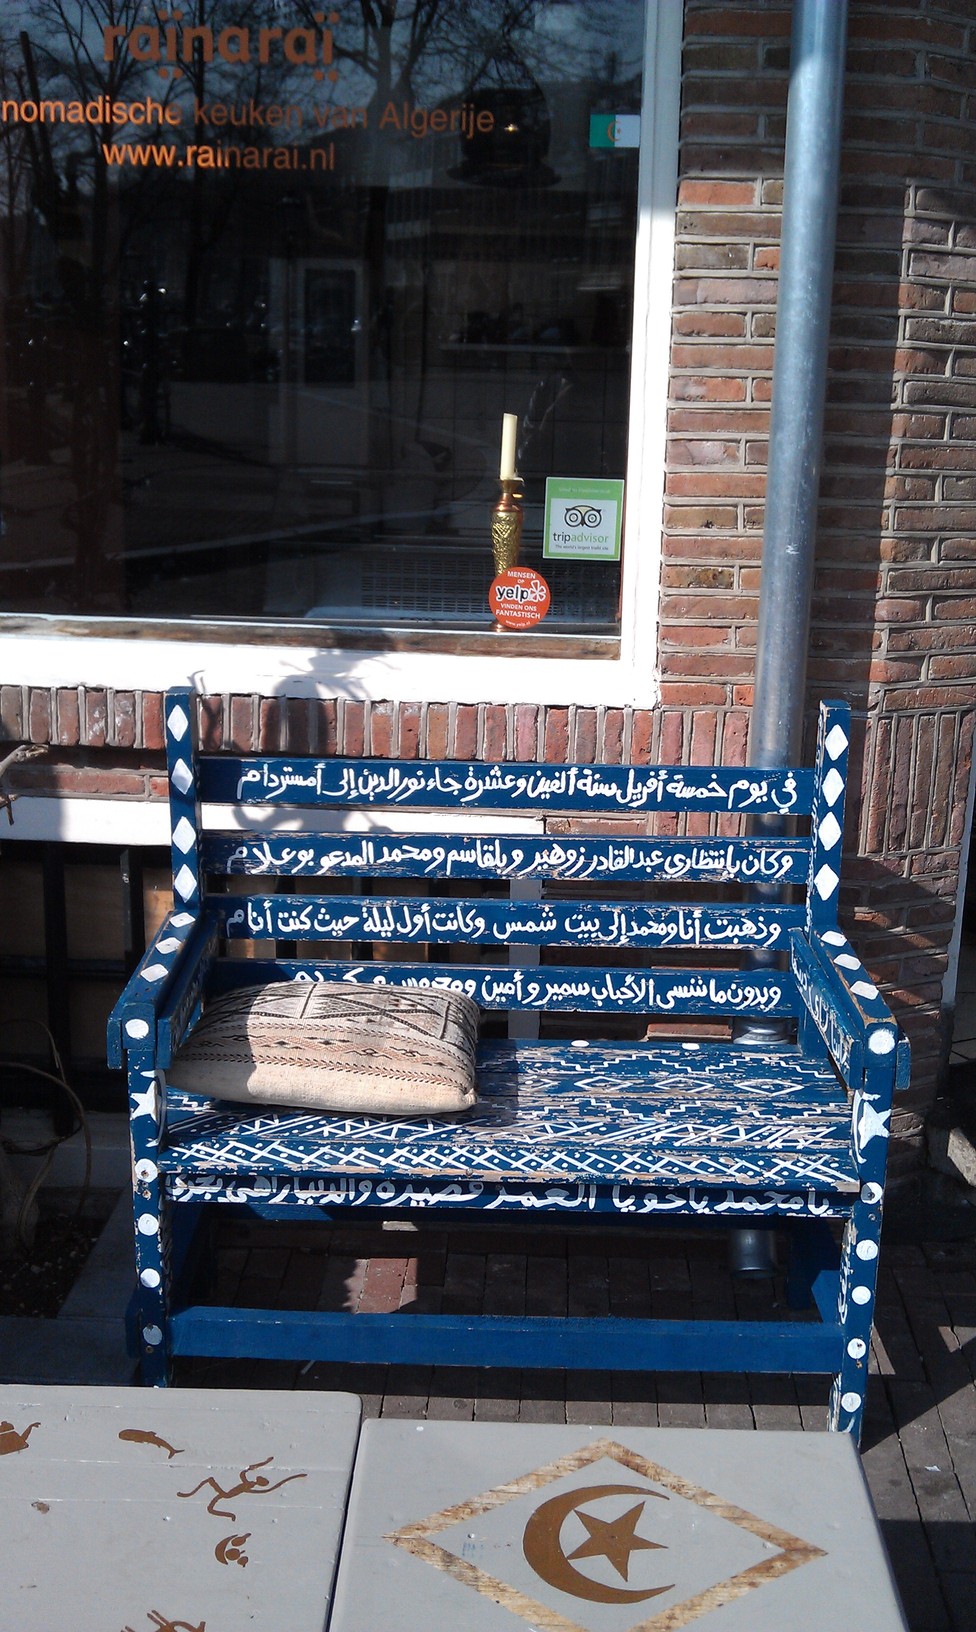 raïnaraï
nomadische keuken van Algerije
www.rainarai.nl
tripadvisor
MENSEN
OP
yelp
VINDEN ONS
FANTASTISCH
www.yelp.nl
في يوم خمسة أفريل سنة ألفين وعشرة جاء نور الدين إلى أمستردام
وكان بإنتظاري عبد القادر زوهير و بلقاسم ومحمد المدعو بوعلام
وذهبت أنا ومحمد إلى بيت شمس وكانت أول ليلة حيث كنت أنام
وبدون ما ننسى الأحباب سمير و أمين ومحبوس و
يا محمد ياخويا العمر قصيرة والدنيا راهي بجري